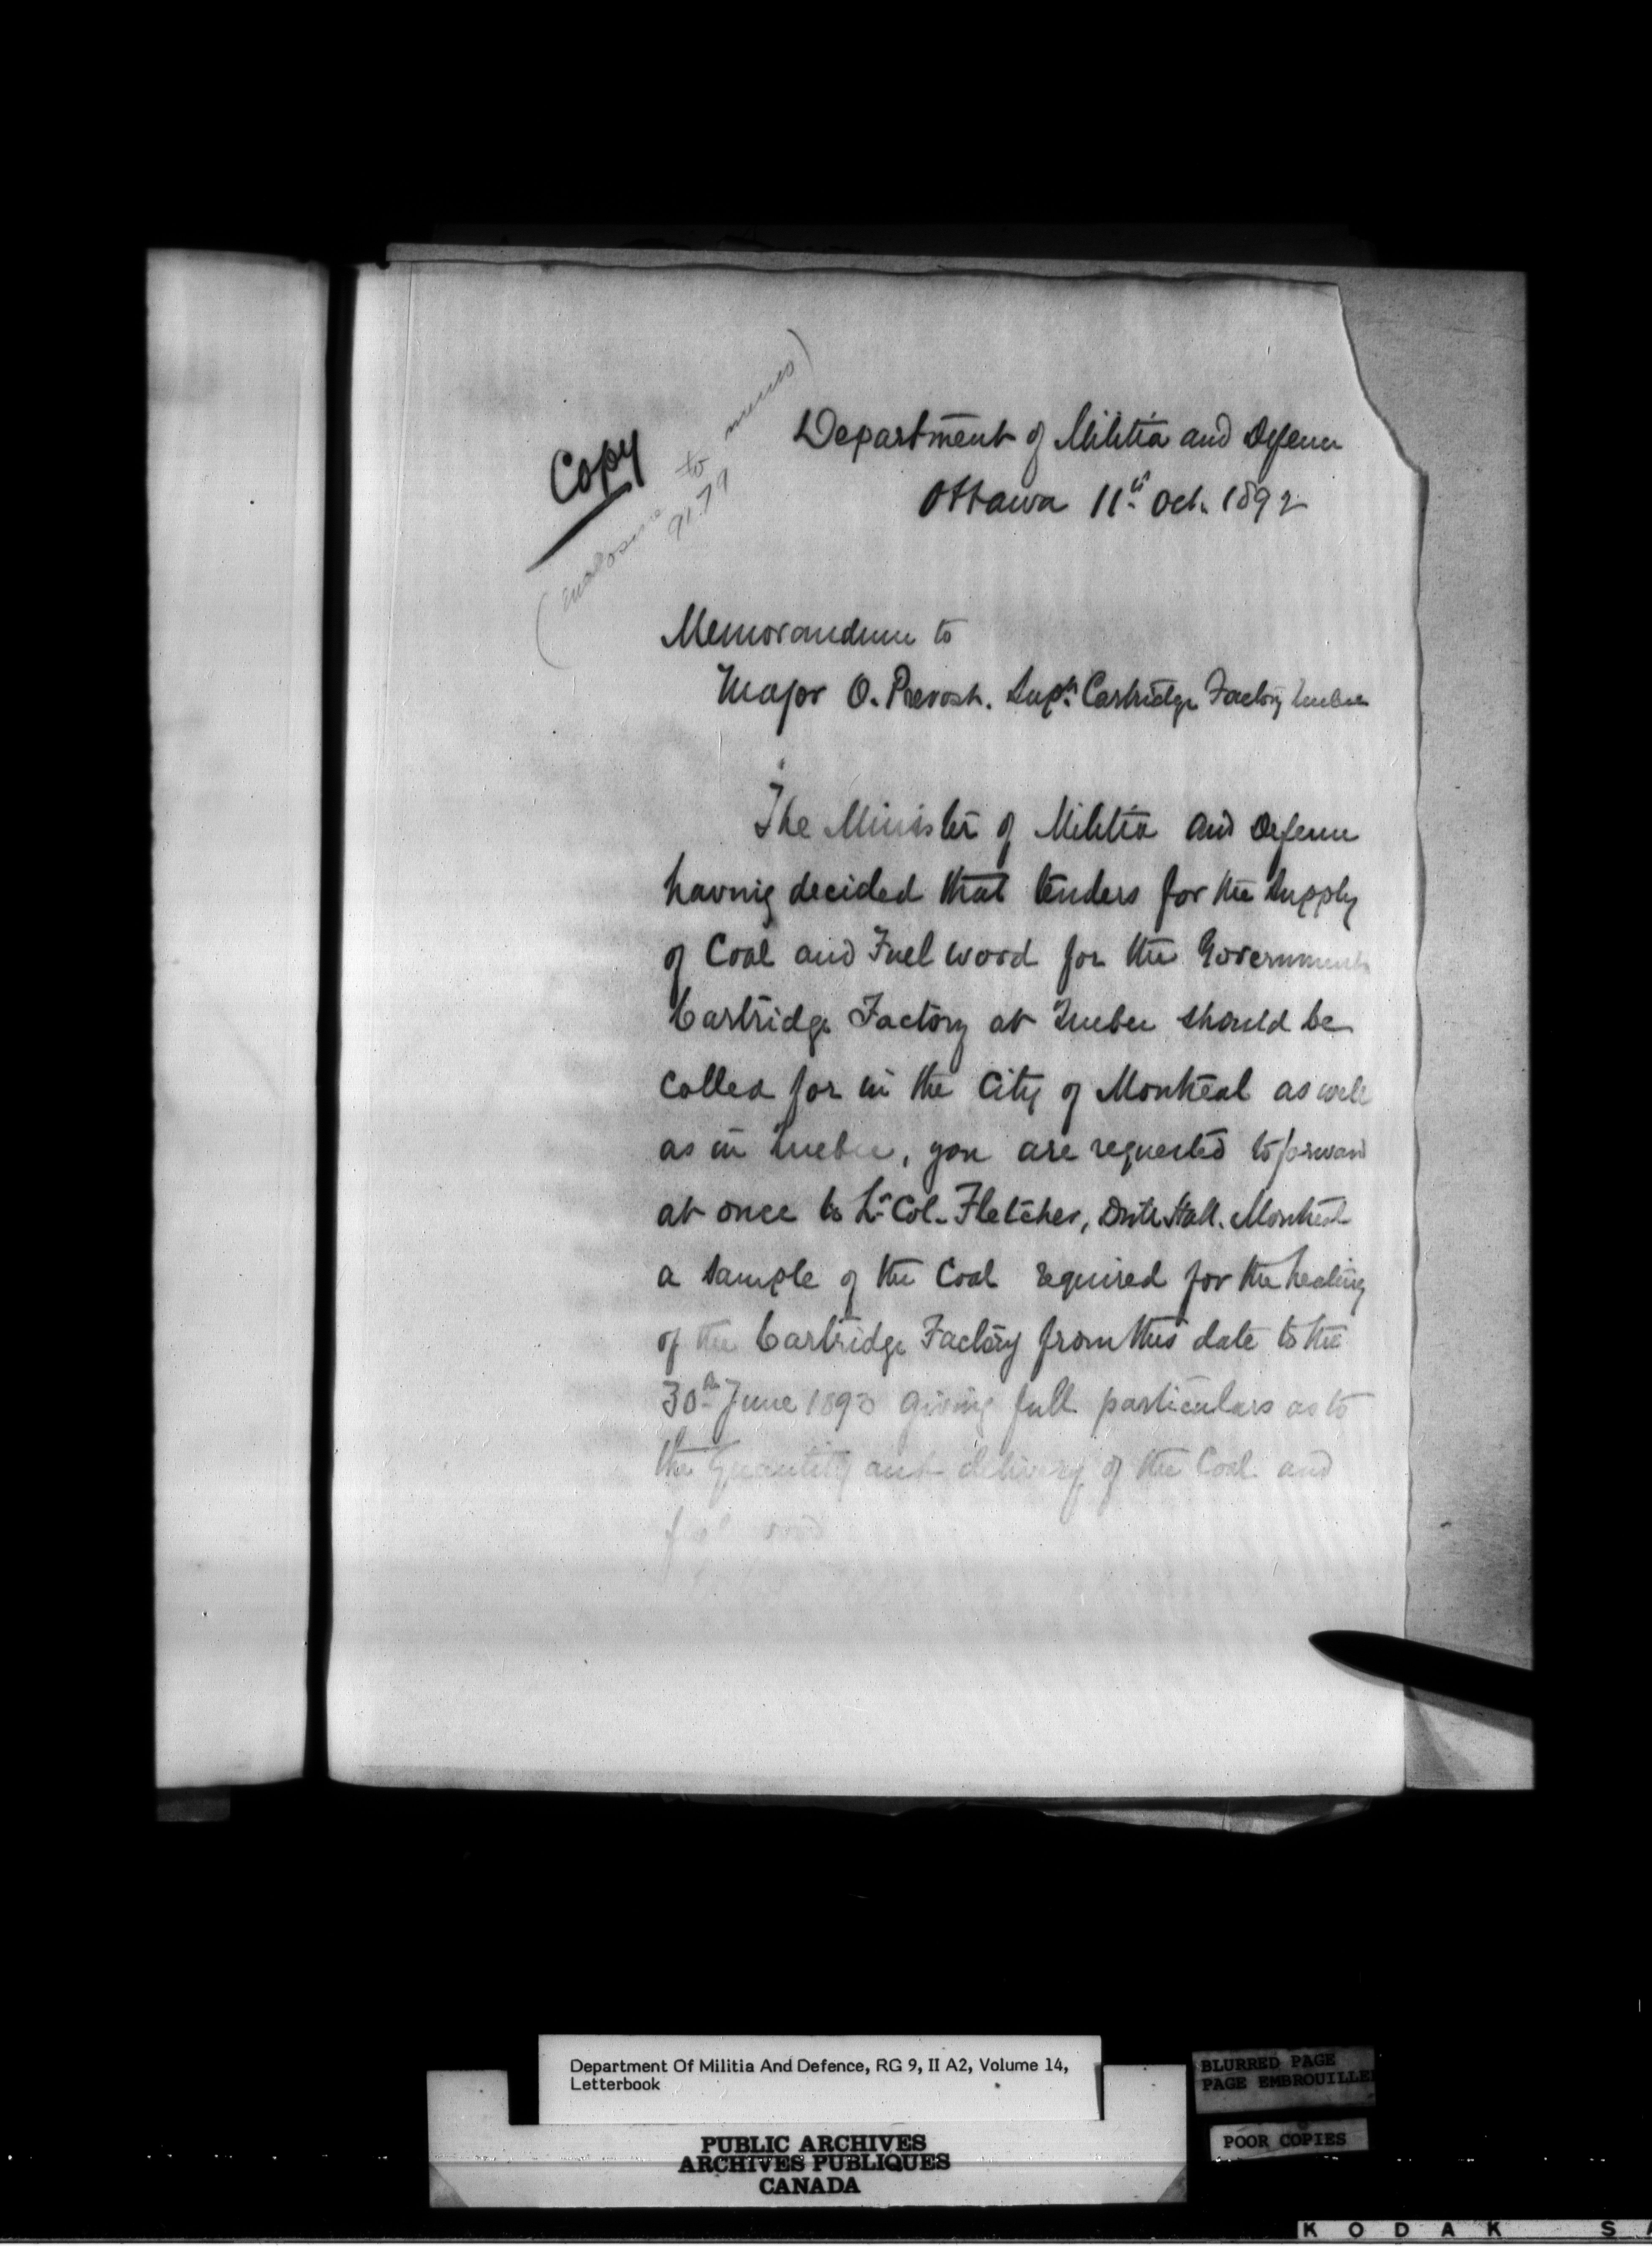 Copy
(enclosure to
9179
Department of Militia and Defence
Ottawa 11th Oct. 1892
Memorandum to
Major O. Prevost. Supt. Cartridge Factory Quebec
The Minister of Militia and Defence
having decided that tenders for the supply
of Coal and Fuel wood for the Government
Cartridge Factory at Quebec should be
called for in the City of Montreal as well
as in Quebec, you are requested to forward
at once to Lt Col. Fletcher, Drill Hall. Montreal
a sample of the Coal required for the heating
of the Cartridge Factory from this date to the
30th June 1893 giving full particulars as to
the Quantity and delivery of the Coal and
fuel wood
Department Of Militia And Defence, RG 9, II A2, Volume 14,
Letterbook
BLURRED PAGE
PAGE EMBROUILLEE
POOR COPIES
PUBLIC ARCHIVES
ARCHIVES PUBLIQUES
CANADA
KODAK SA